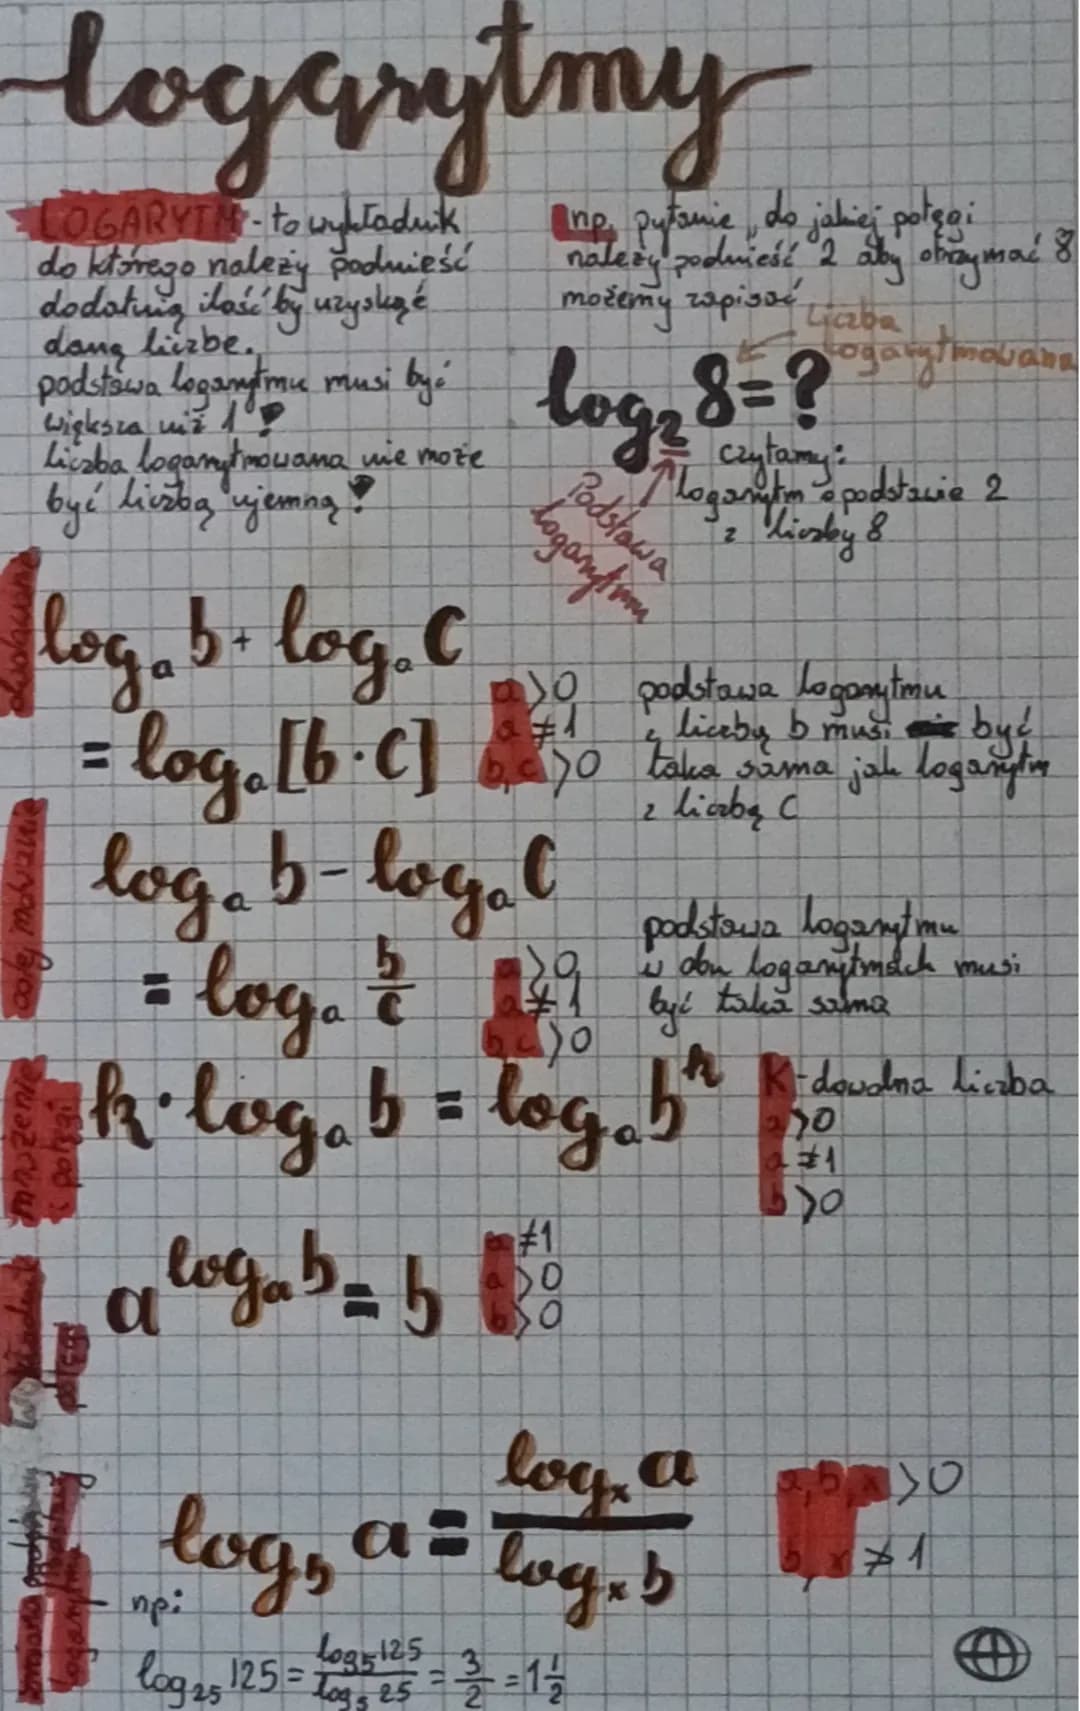 logarytmy
LOGARYTM - to wykładnik
do którego należy podnieść
dodatnią ilość by uzyskać
daną liczbe.
podstawa logarytmu musi być
większa niż 1!
liczba logarytmowana nie może
być liczbą ujemną!
np. pytanie „do jakiej potęgi
należy podnieść 2 aby otrzymać 8
możemy zapisać
liczba
logarytmowana
log₂ 8 = ?
czytamy:
logarytm o podstawie 2
z liczby 8
Podstawa
logarytmu
dodawanie
logₐ b + logₐ C
= logₐ [b · C]
a > 0
a ≠ 1
b, c > 0
podstawa logarytmu
z liczbą b musi być
taka sama jak logarytm
z liczbą C
odejmowanie
logₐ b - logₐ C
= logₐ b/c
a > 0
a ≠ 1
b, c > 0
podstawa logarytmu
w obu logarytmach musi
być taka sama
mnożenie
potęgi
k · logₐ b = logₐ bᵏ
K - dowolna liczba
a > 0
a ≠ 1
b > 0
potęgi
a^(logₐ b) = b
a ≠ 1
a > 0
b > 0
zmiana podstawy
logarytmu
log_b a = log_x a / log_x b
a, b, x > 0
b, x ≠ 1
np:
log₂₅ 125 = log₅ 125 / log₅ 25 = 3/2 = 1 1/2